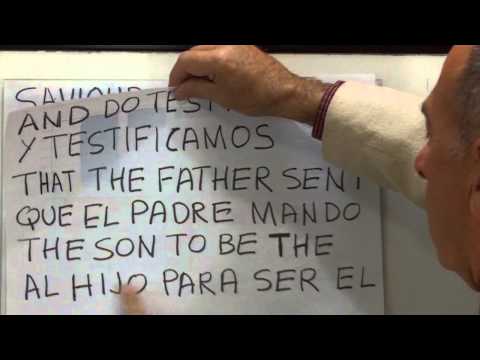 SAVIOUR
AND DO TEST
Y TESTIFICAMOS
THAT THE FATHER SENT
QUE EL PADRE MANDO
THE SON TO BE THE
AL HIJO PARA SER EL